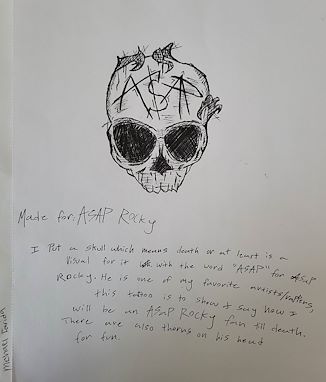 A$AP
Made for: A$AP Rocky
I Put a skull which means death or at least is a
Visual for it with the word "ASAP" for ASAP
Rocky. He is one of my favorite artists/rappers,
this tattoo is to show & say how I
will be an ASAP Rocky fan till death.
There are also thorns on his head
for fun.
Michael